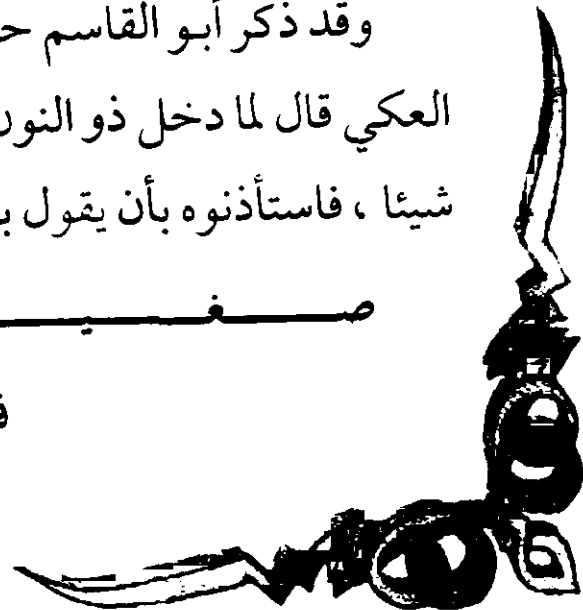 وقد ذكر أبو القاسم
العكي قال لما دخل ذو النون
شيئا ، فاستأذنوه بأن يقول
صغيـ